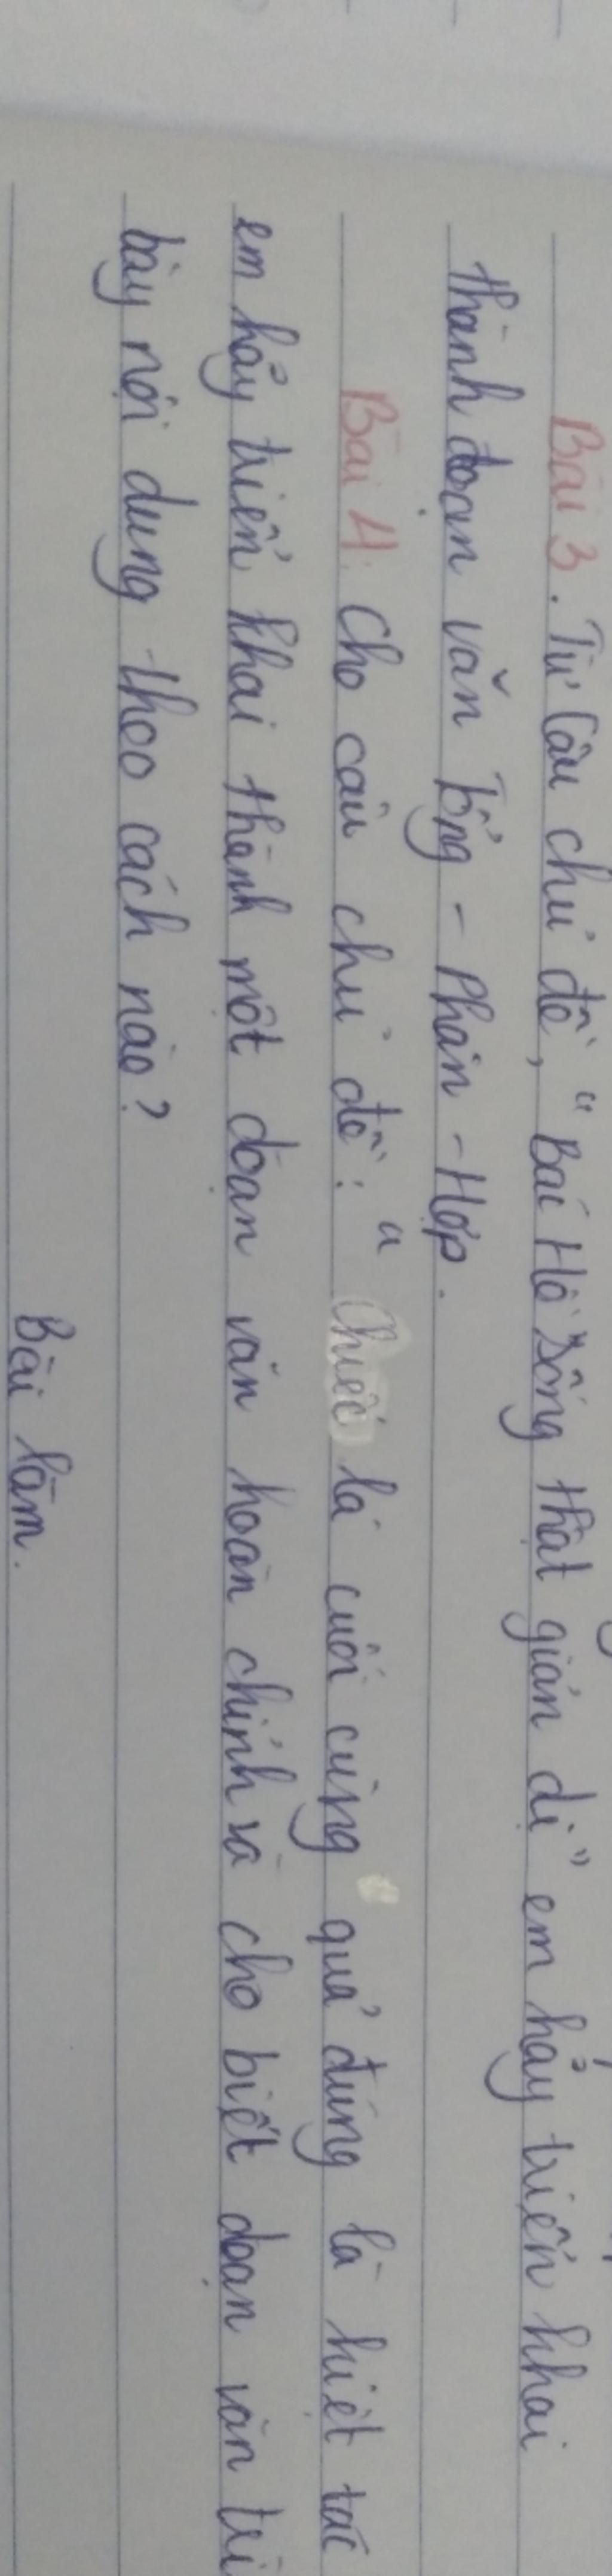 Bài 3. Từ câu chủ đề, "Bác Hồ sống thật giản dị" em hãy triển khai
thành đoạn văn Tổng - Phân - Hợp.
Bài 4: Cho câu chủ đề: "Chiếc lá cuối cùng" quả đúng là kiệt tác
em hãy triển khai thành một đoạn văn hoàn chỉnh và cho biết đoạn văn trì
bày nội dung theo cách nào?
Bài làm.